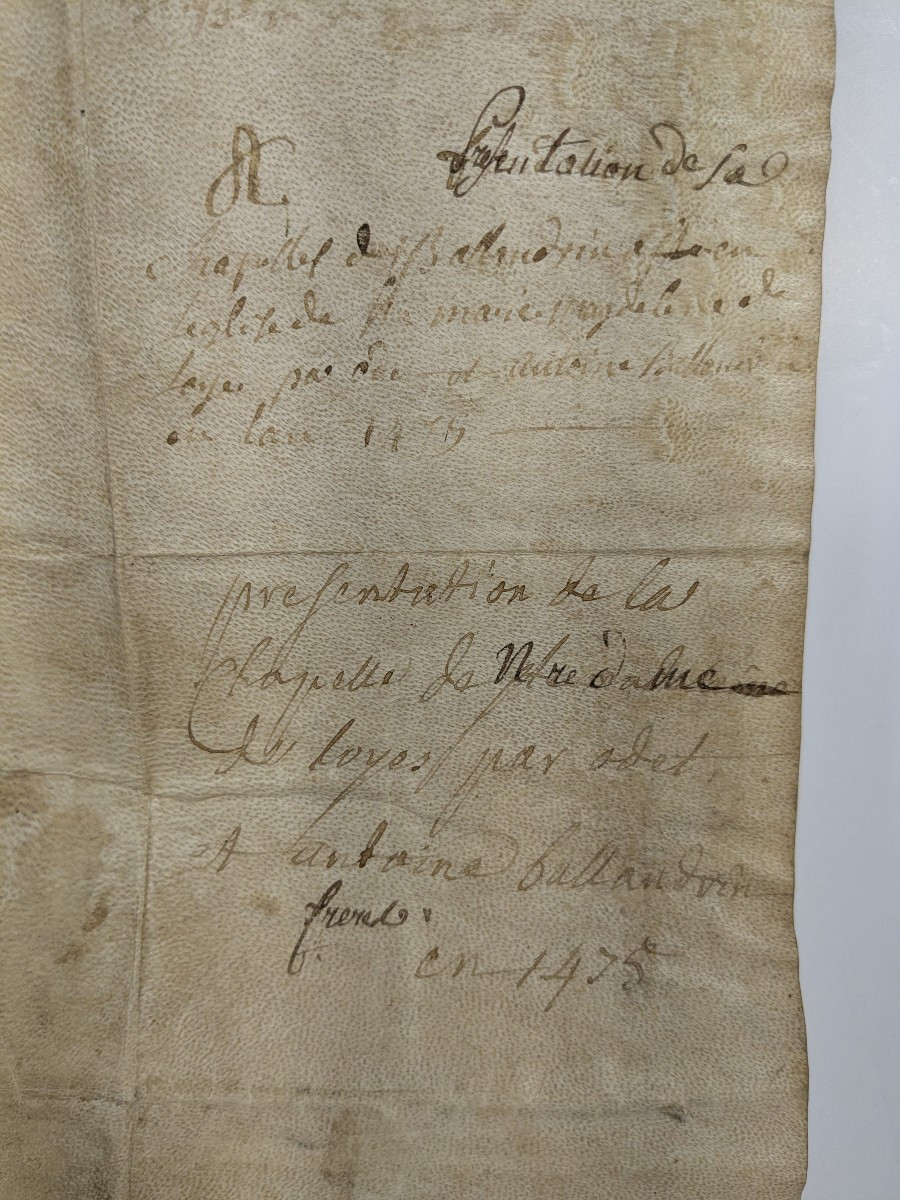 Presentation de La
Chapelle des Ballandrin en
leglise de Ste marie magdelene de
Loyes par et Antoine Ballandrin
en lan 1475
presentation de la
Chapelle de Notre dame
de loyes par odet
et antoine ballandrin
freres
en 1475